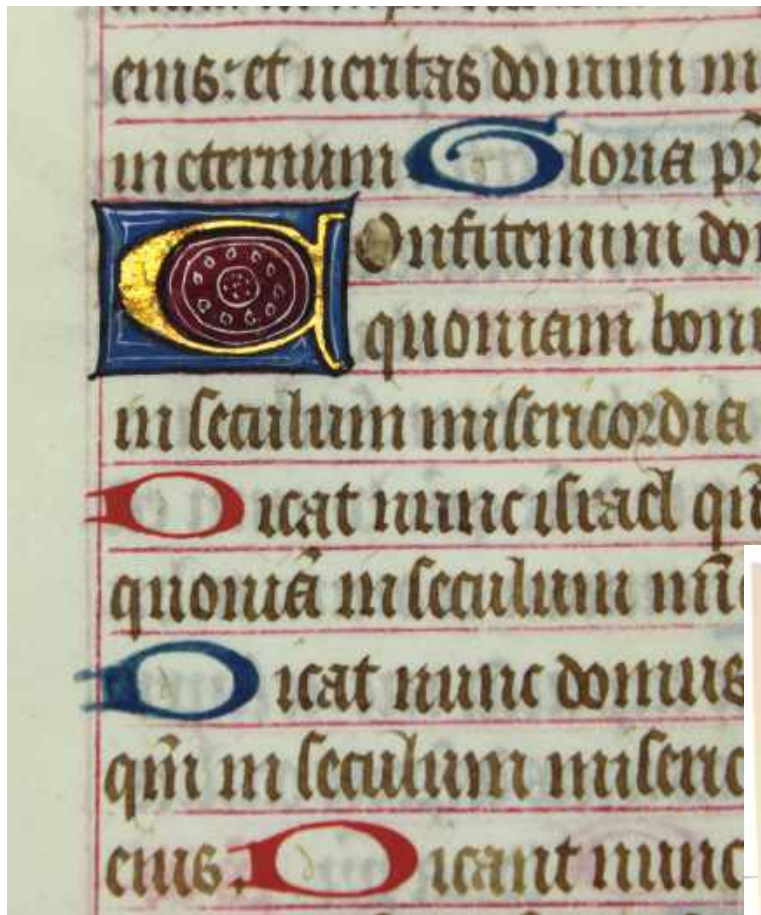 eius: et ueritas domini m
in eternum Gloria pr̄
Confitemini do
quoniam bon
in seculum misericordia
Dicat nunc israel qm̄
quoniā in seculum
Dicat nunc domus
qm̄ in seculum miseric
eius. Dicant nunc